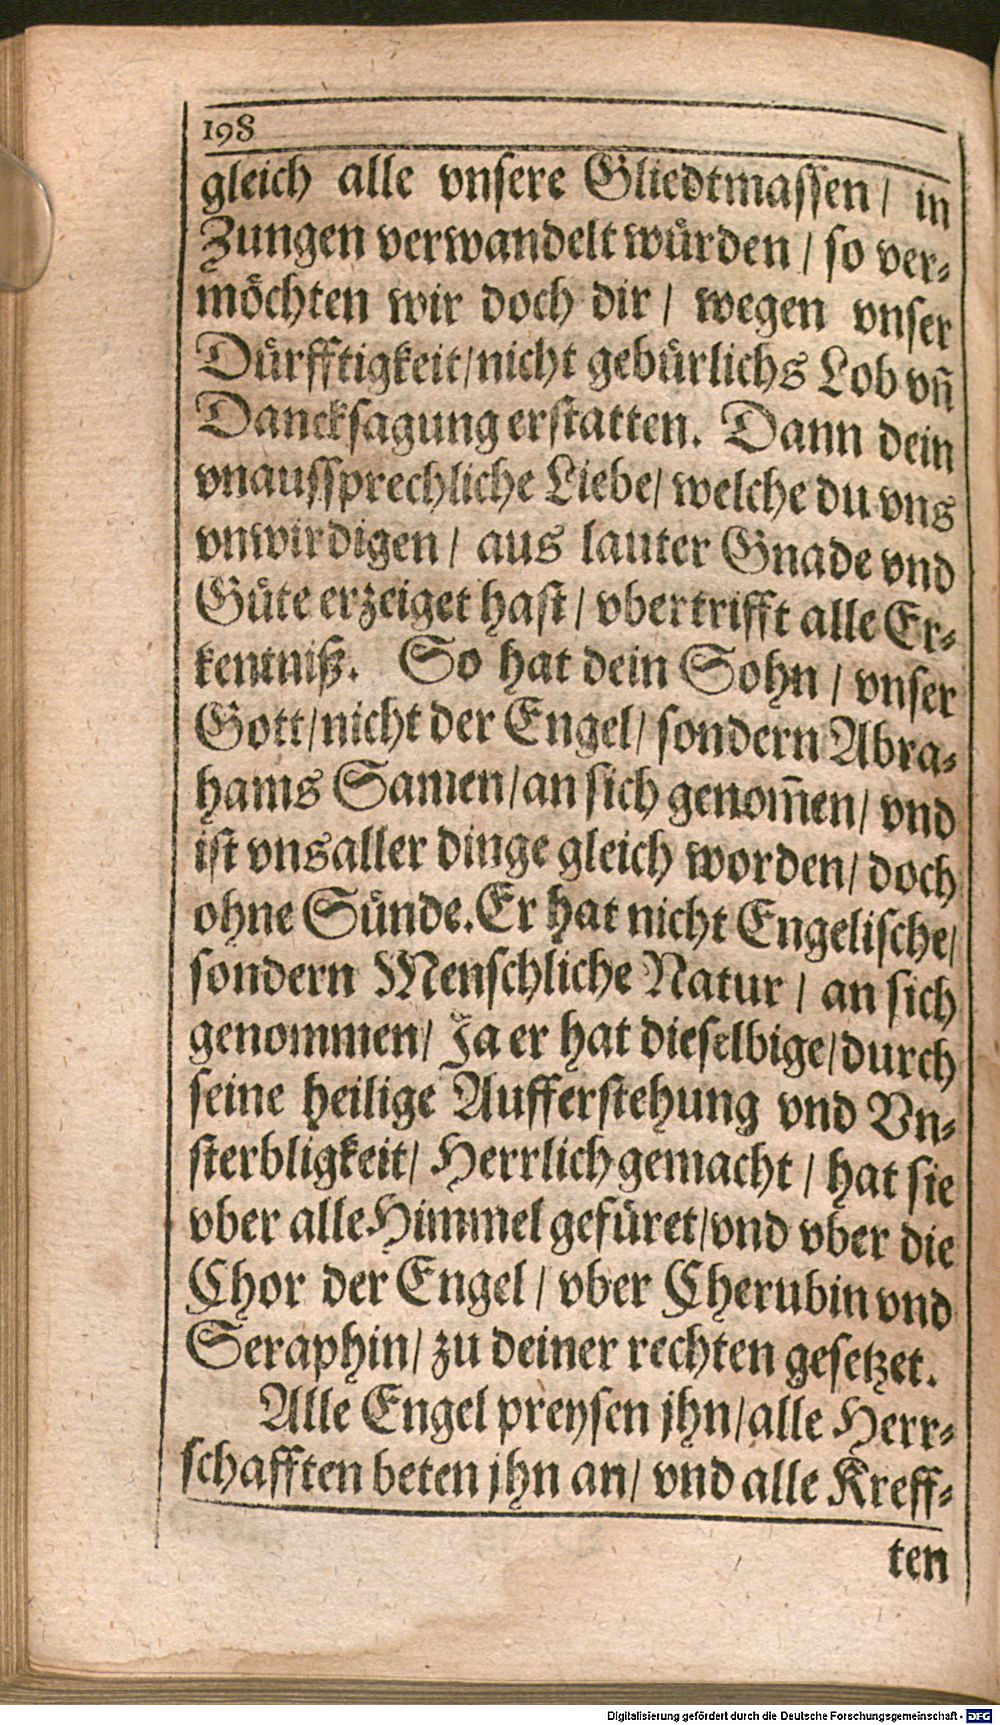 198
gleich alle vnsere Gliedtmassen / in
Zungen verwandelt würden / so ver-
möchten wir doch dir / wegen vnser
Dürfftigkeit/nicht gebürlichs Lob vñ
Dancksagung erstatten. Dann dein
vnaussprechliche Liebe/ welche du vns
vnwirdigen / aus lauter Gnade vnd
Güte erzeiget hast / vbertrifft alle Er-
kentniß. So hat dein Sohn / vnser
Gott/nicht der Engel/ sondern Abra-
hams Samen/an sich genom̃en/ vnd
ist vns aller dinge gleich worden/ doch
ohne Sünde. Er hat nicht Engelische/
sondern Menschliche Natur / an sich
genommen/ Ja er hat dieselbige/durch
seine heilige Aufferstehung vnd Vn-
sterbligkeit/ Herrlich gemacht / hat sie
vber alle Himmel gefüret/vnd vber die
Chor der Engel / vber Cherubin vnd
Seraphin/ zu deiner rechten gesetzet.
Alle Engel preysen jhn/alle Herr-
schafften beten jhn an/ vnd alle Kreff-
ten
Digitalisierung gefördert durch die Deutsche Forschungsgemeinschaft - DFG